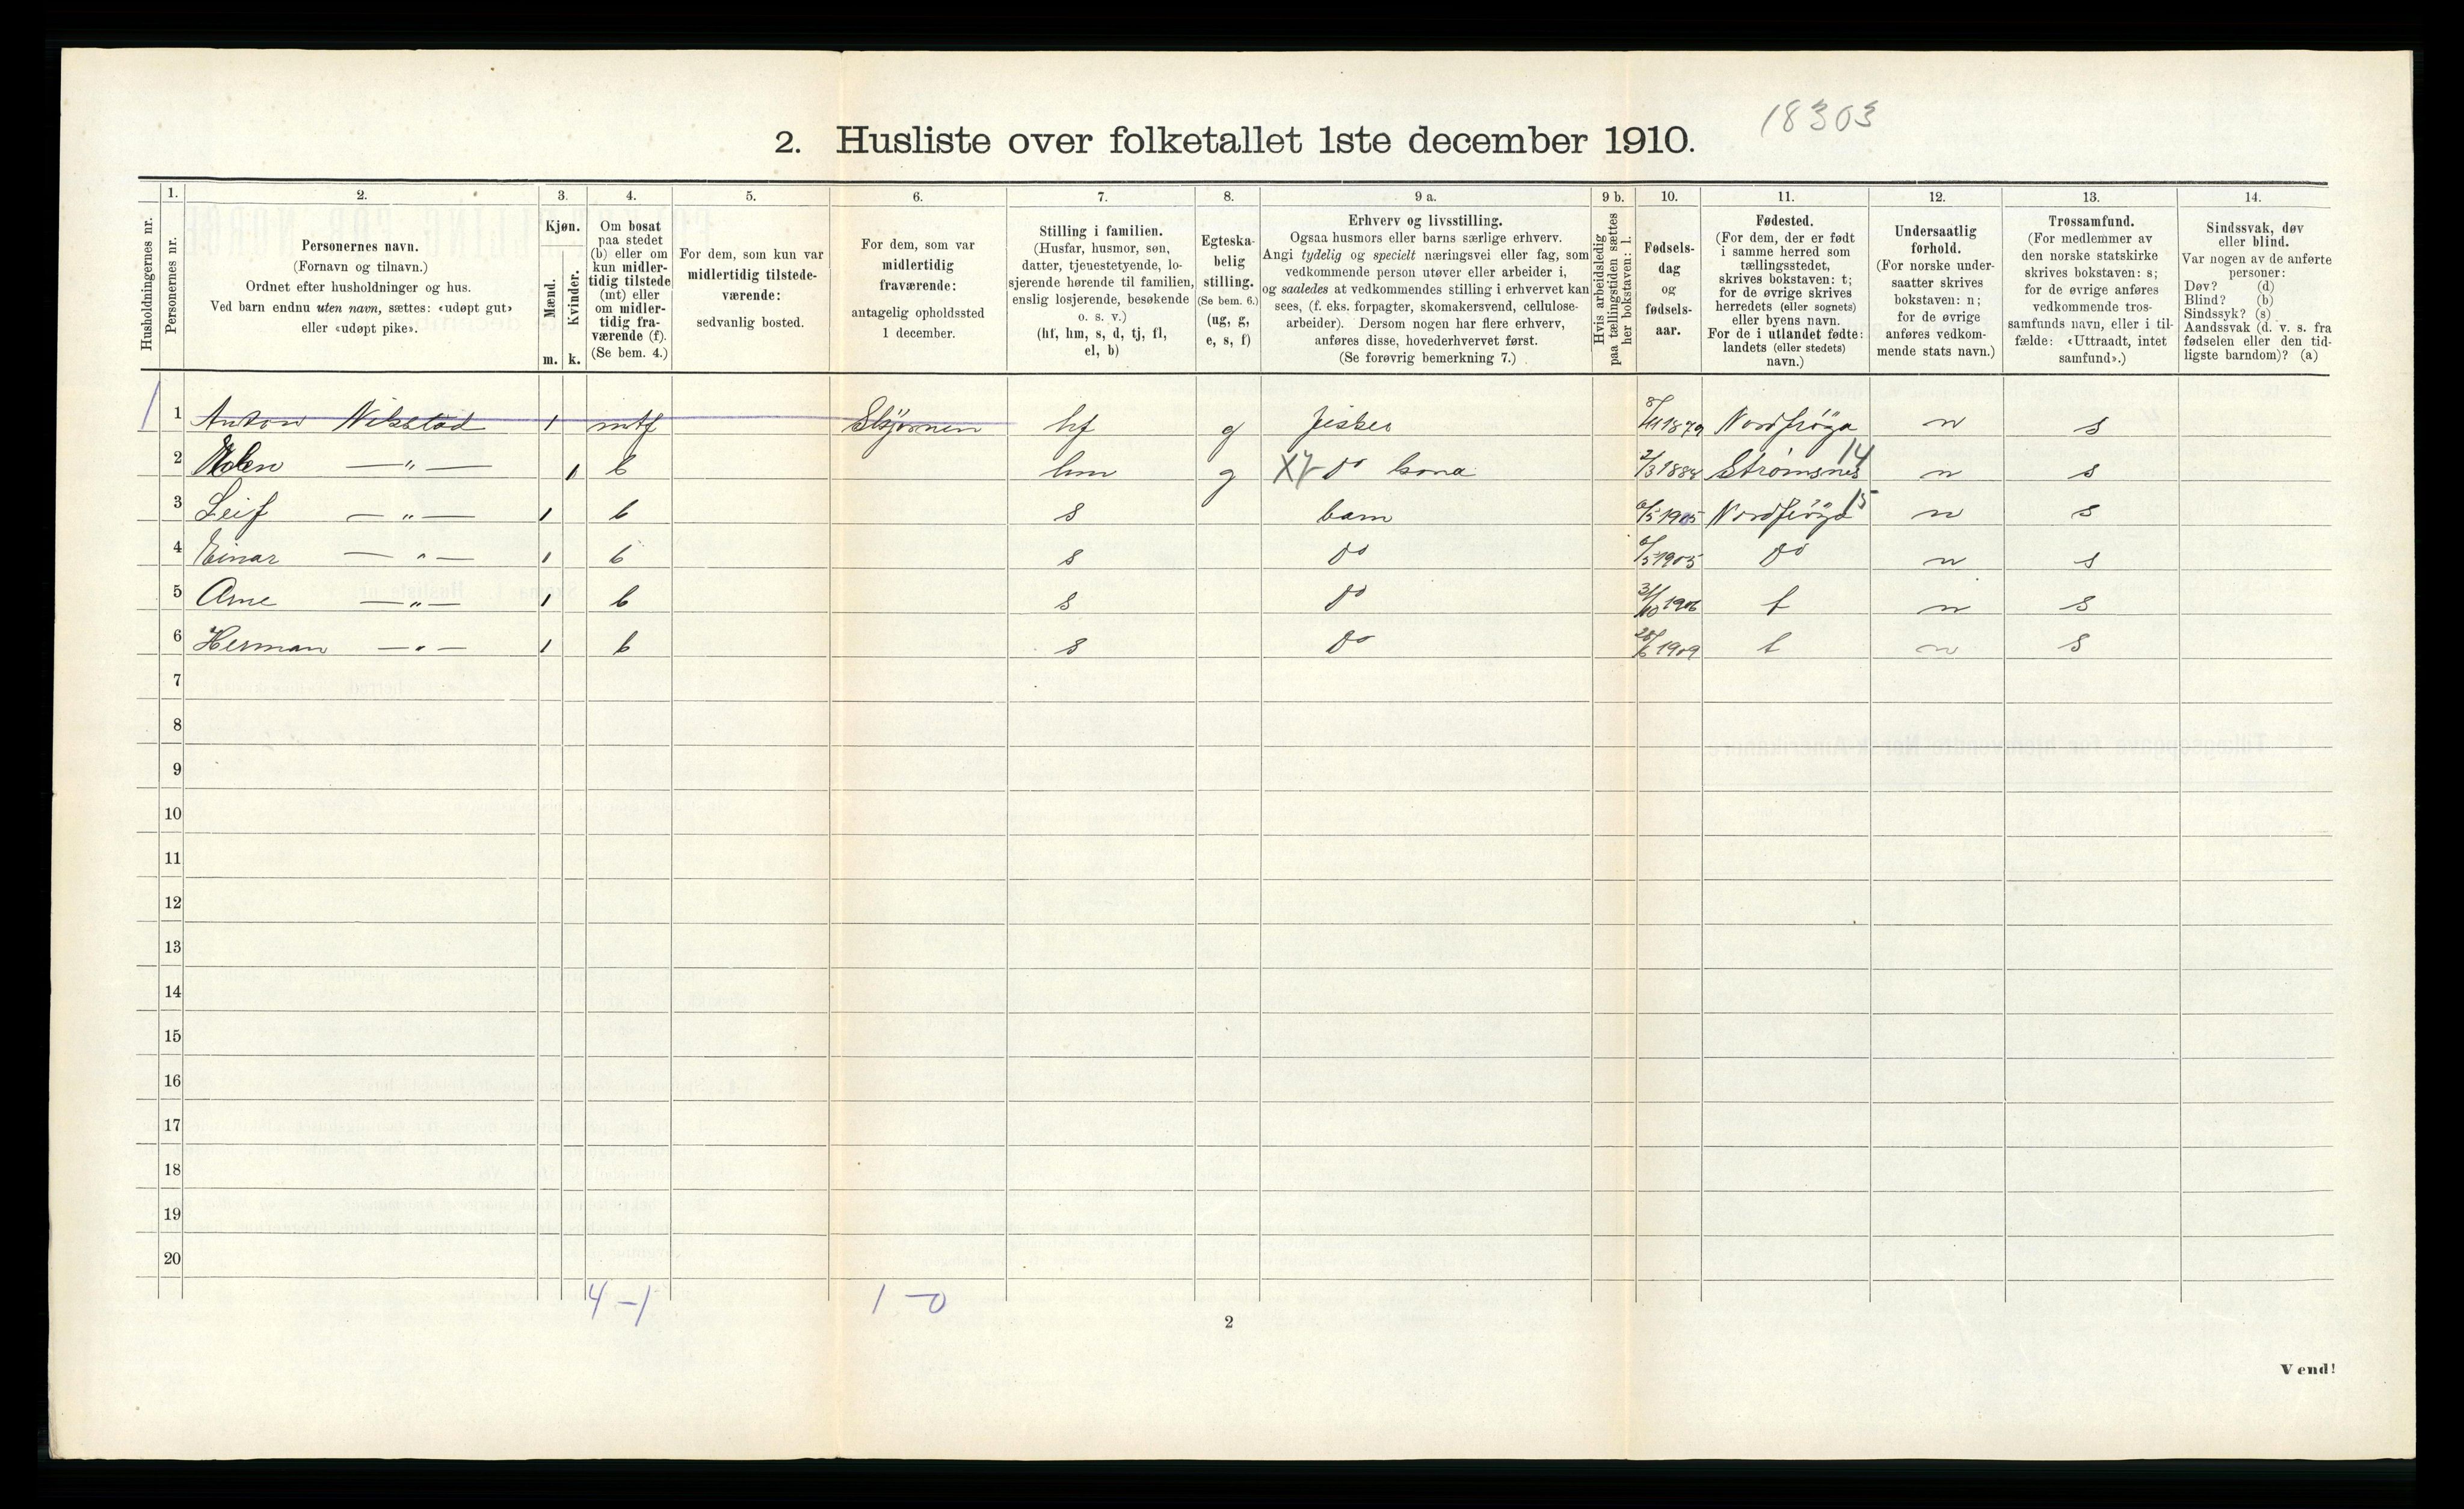 18303
2. Husliste over folketallet 1ste december 1910.
Husholdningernes nr.
1.
Personernes nr.
2.
Personernes navn.
(Fornavn og tilnavn.)
Ordnet efter husholdninger og hus.
Ved barn endnu uten navn, sættes: «udøpt gut»
eller «udøpt pike».
3.
Kjøn.
Mænd.
Kvinder.
m. k.
4.
Om bosat
paa stedet
(b) eller om
kun midler-
tidig tilstede
(mt) eller
om midler-
tidig fra-
værende (f).
(Se bem. 4.)
5.
For dem, som kun var
midlertidig tilstede-
værende:
sedvanlig bosted.
6.
For dem, som var
midlertidig
fraværende:
antagelig opholdssted
1 december.
7.
Stilling i familien.
(Husfar, husmor, søn,
datter, tjenestetyende, lo-
sjerende hørende til familien,
enslig losjerende, besøkende
o. s. v.)
(hf, hm, s, d, tj, fl,
el, b)
8.
Egteska-
belig
stilling.
(Se bem. 6.)
(ug, g,
e, s, f)
9 a.
Erhverv og livsstilling.
Ogsaa husmors eller barns særlige erhverv.
Angi tydelig og specielt næringsvei eller fag, som
vedkommende person utøver eller arbeider i,
og saaledes at vedkommendes stilling i erhvervet kan
sees, (f. eks. forpagter, skomakersvend, cellulose-
arbeider). Dersom nogen har flere erhverv,
anføres disse, hovederhvervet først.
(Se forøvrig bemerkning 7.)
9 b.
Hvis arbeidsledig
paa tællingstiden sættes
her bokstaven: l.
10.
Fødsels-
dag
og
fødsels-
aar.
11.
Fødested.
(For dem, der er født
i samme herred som
tællingsstedet,
skrives bokstaven: t;
for de øvrige skrives
herredets (eller sognets)
eller byens navn.
For de i utlandet fødte:
landets (eller stedets)
navn.)
12.
Undersaatlig
forhold.
(For norske under-
saatter skrives
bokstaven: n;
for de øvrige
anføres vedkom-
mende stats navn.)
13.
Trossamfund.
(For medlemmer av
den norske statskirke
skrives bokstaven: s;
for de øvrige anføres
vedkommende tros-
samfunds navn, eller i til-
fælde: «Uttraadt, intet
samfund».)
14.
Sindssvak, døv
eller blind.
Var nogen av de anførte
personer:
Døv? (d)
Blind? (b)
Sindssyk? (s)
Aandssvak (d. v. s. fra
fødselen eller den tid-
ligste barndom)? (a)
1 1 Anton 1 mtf hf g fisker 8/11 1879 Nordfrøya n s
2 —„— 1 b hm g X7 do kona 2/3 1884 Strømsnes 14 n s
3 Leif —„— 1 b s barn 6/5 1905 Nordfrøya 15 n s
4 Einar —„— 1 b s do 6/5 1905 do n s
5 Arne —„— 1 b s do 31/10 1906 t n s
6 Herman —„— 1 b s do 28/6 1909 t n s
7
8
9
10
11
12
13
14
15
16
17
18
19
20
4 – 1 1 – 0
2
Vend!